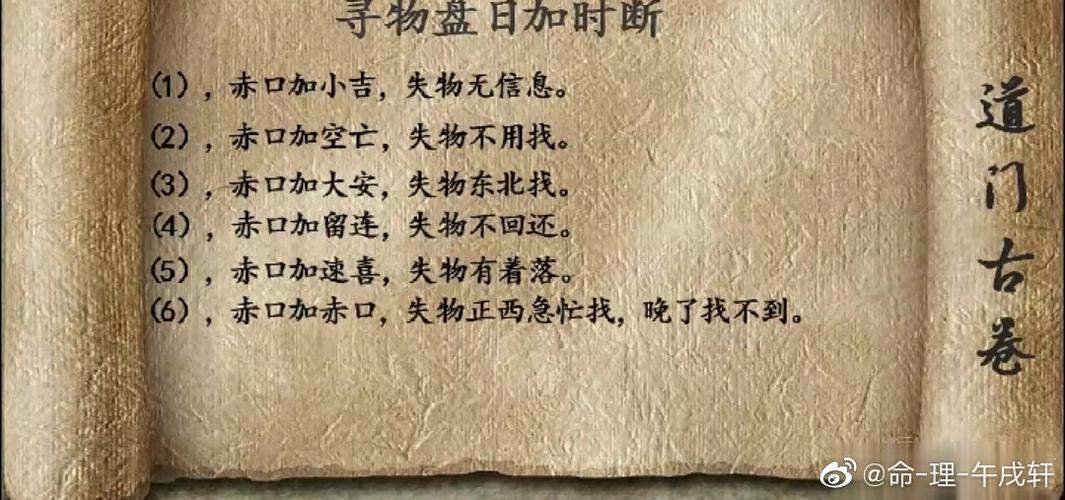 寻物盘日加时断
(1），赤口加小吉，失物无信息。
(2），赤口加空亡，失物不用找。
(3），赤口加大安，失物东北找。
(4），赤口加留连，失物不回还。
(5），赤口加速喜，失物有着落。
(6），赤口加赤口，失物正西急忙找，晚了找不到。
道门古卷
@命-理-午戌轩